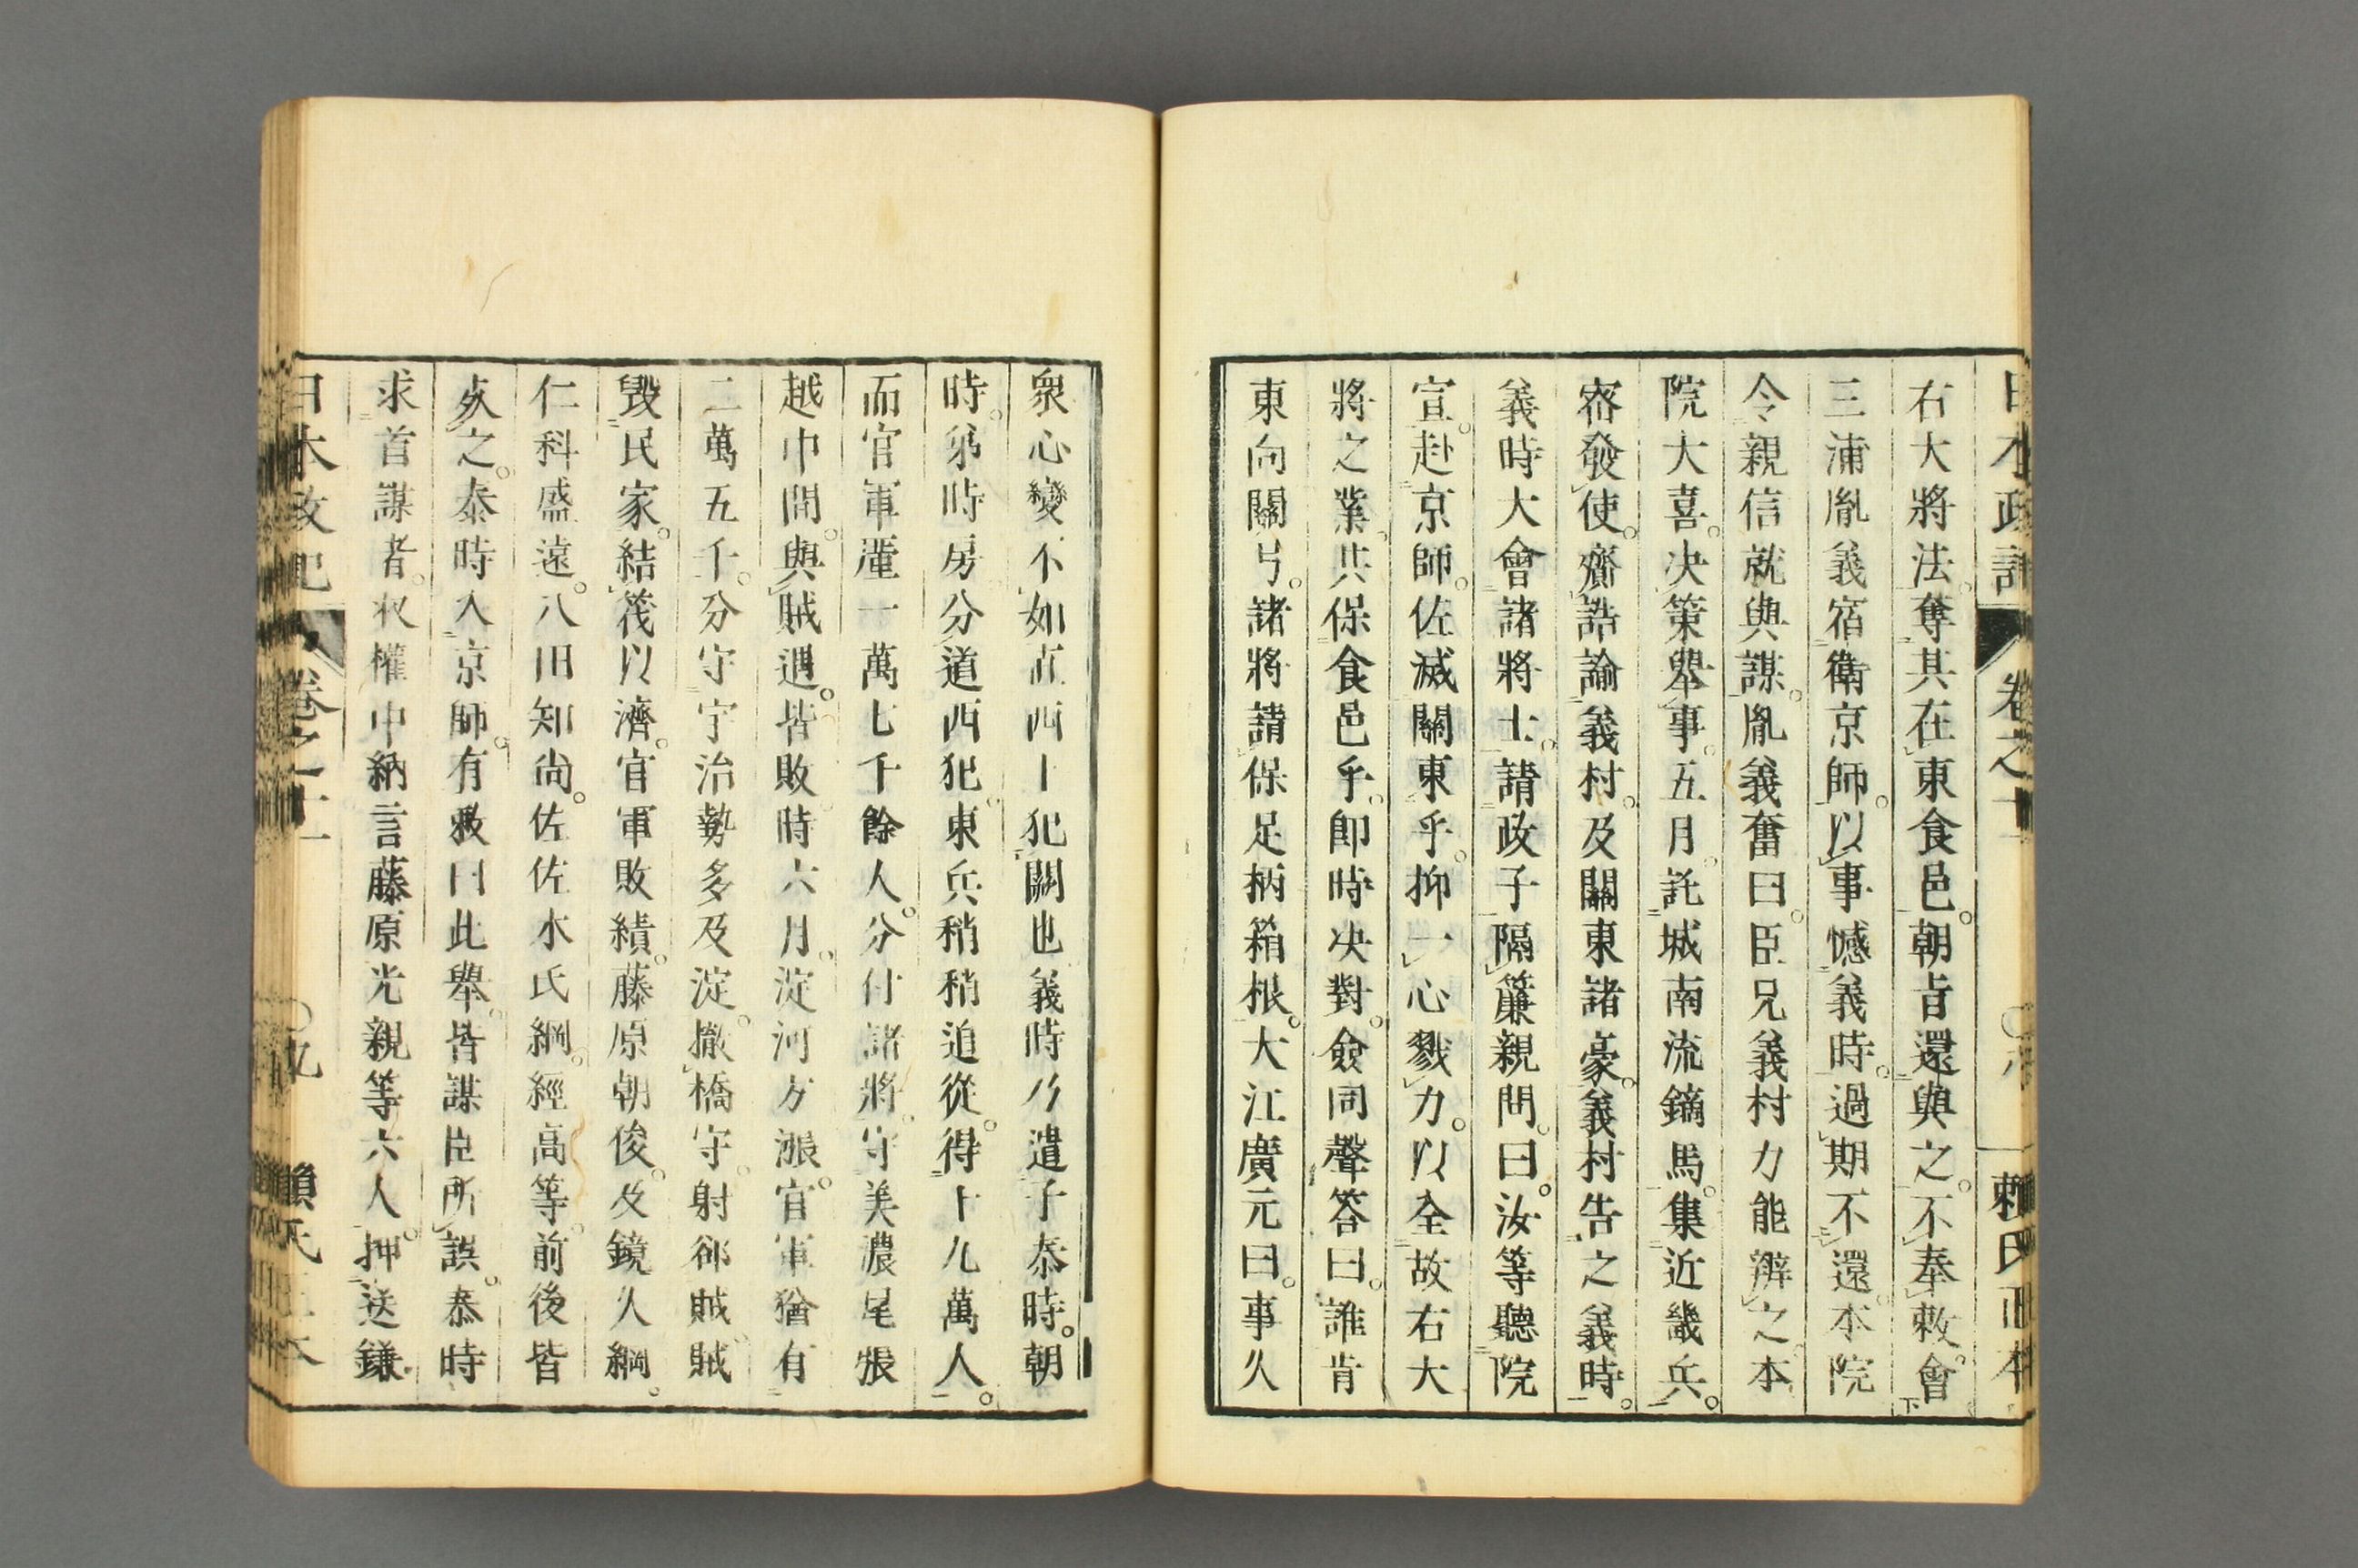 日本政記 卷之十 賴氏正本
右大將法。奪其在東食邑。朝旨還與之。不奉敕。會
三浦胤義宿衛京師。以事憾義時。過期不還。本院
令親信就與謀。胤義奮曰。臣兄義村力能辨之。本
院大喜。决策舉事。五月。託城南流鏑馬。集近畿兵。
密發使。齎誥諭義村。及關東諸豪。義村告之義時。
義時大會諸將士。請政子隔簾親問。曰。汝等聽院
宣。赴京師。佐滅關東乎。抑一心戮力。以全故右大
將之業。共保食邑乎。卽時决對。僉同聲答曰。誰肯
東向關弓。諸將請保足柄箱根。大江廣元曰。事久
衆心變。不如直西上犯闕也。義時乃遣子泰時。朝
時。弟時房分道西犯。東兵稍稍追從。得十九萬人。
而官軍厪一萬七千餘人。分付諸將。守美濃尾張
越中間。與賊遇。皆敗。時六月。淀河方漲。官軍猶有
二萬五千。分守宇治勢多及淀。撤橋守。射郤賊。賊
毀民家。結筏以濟。官軍敗績。藤原朝俊。及鏡久綱。
仁科盛遠。八田知尚。佐佐木氏綱。經高等。前後皆
死之。泰時入京師。有敕曰。此舉。皆謀臣所誤。泰時
求首謀者。收權中納言藤原光親等六人。押送鎌
日本政記 卷之十 〇九 賴氏正本